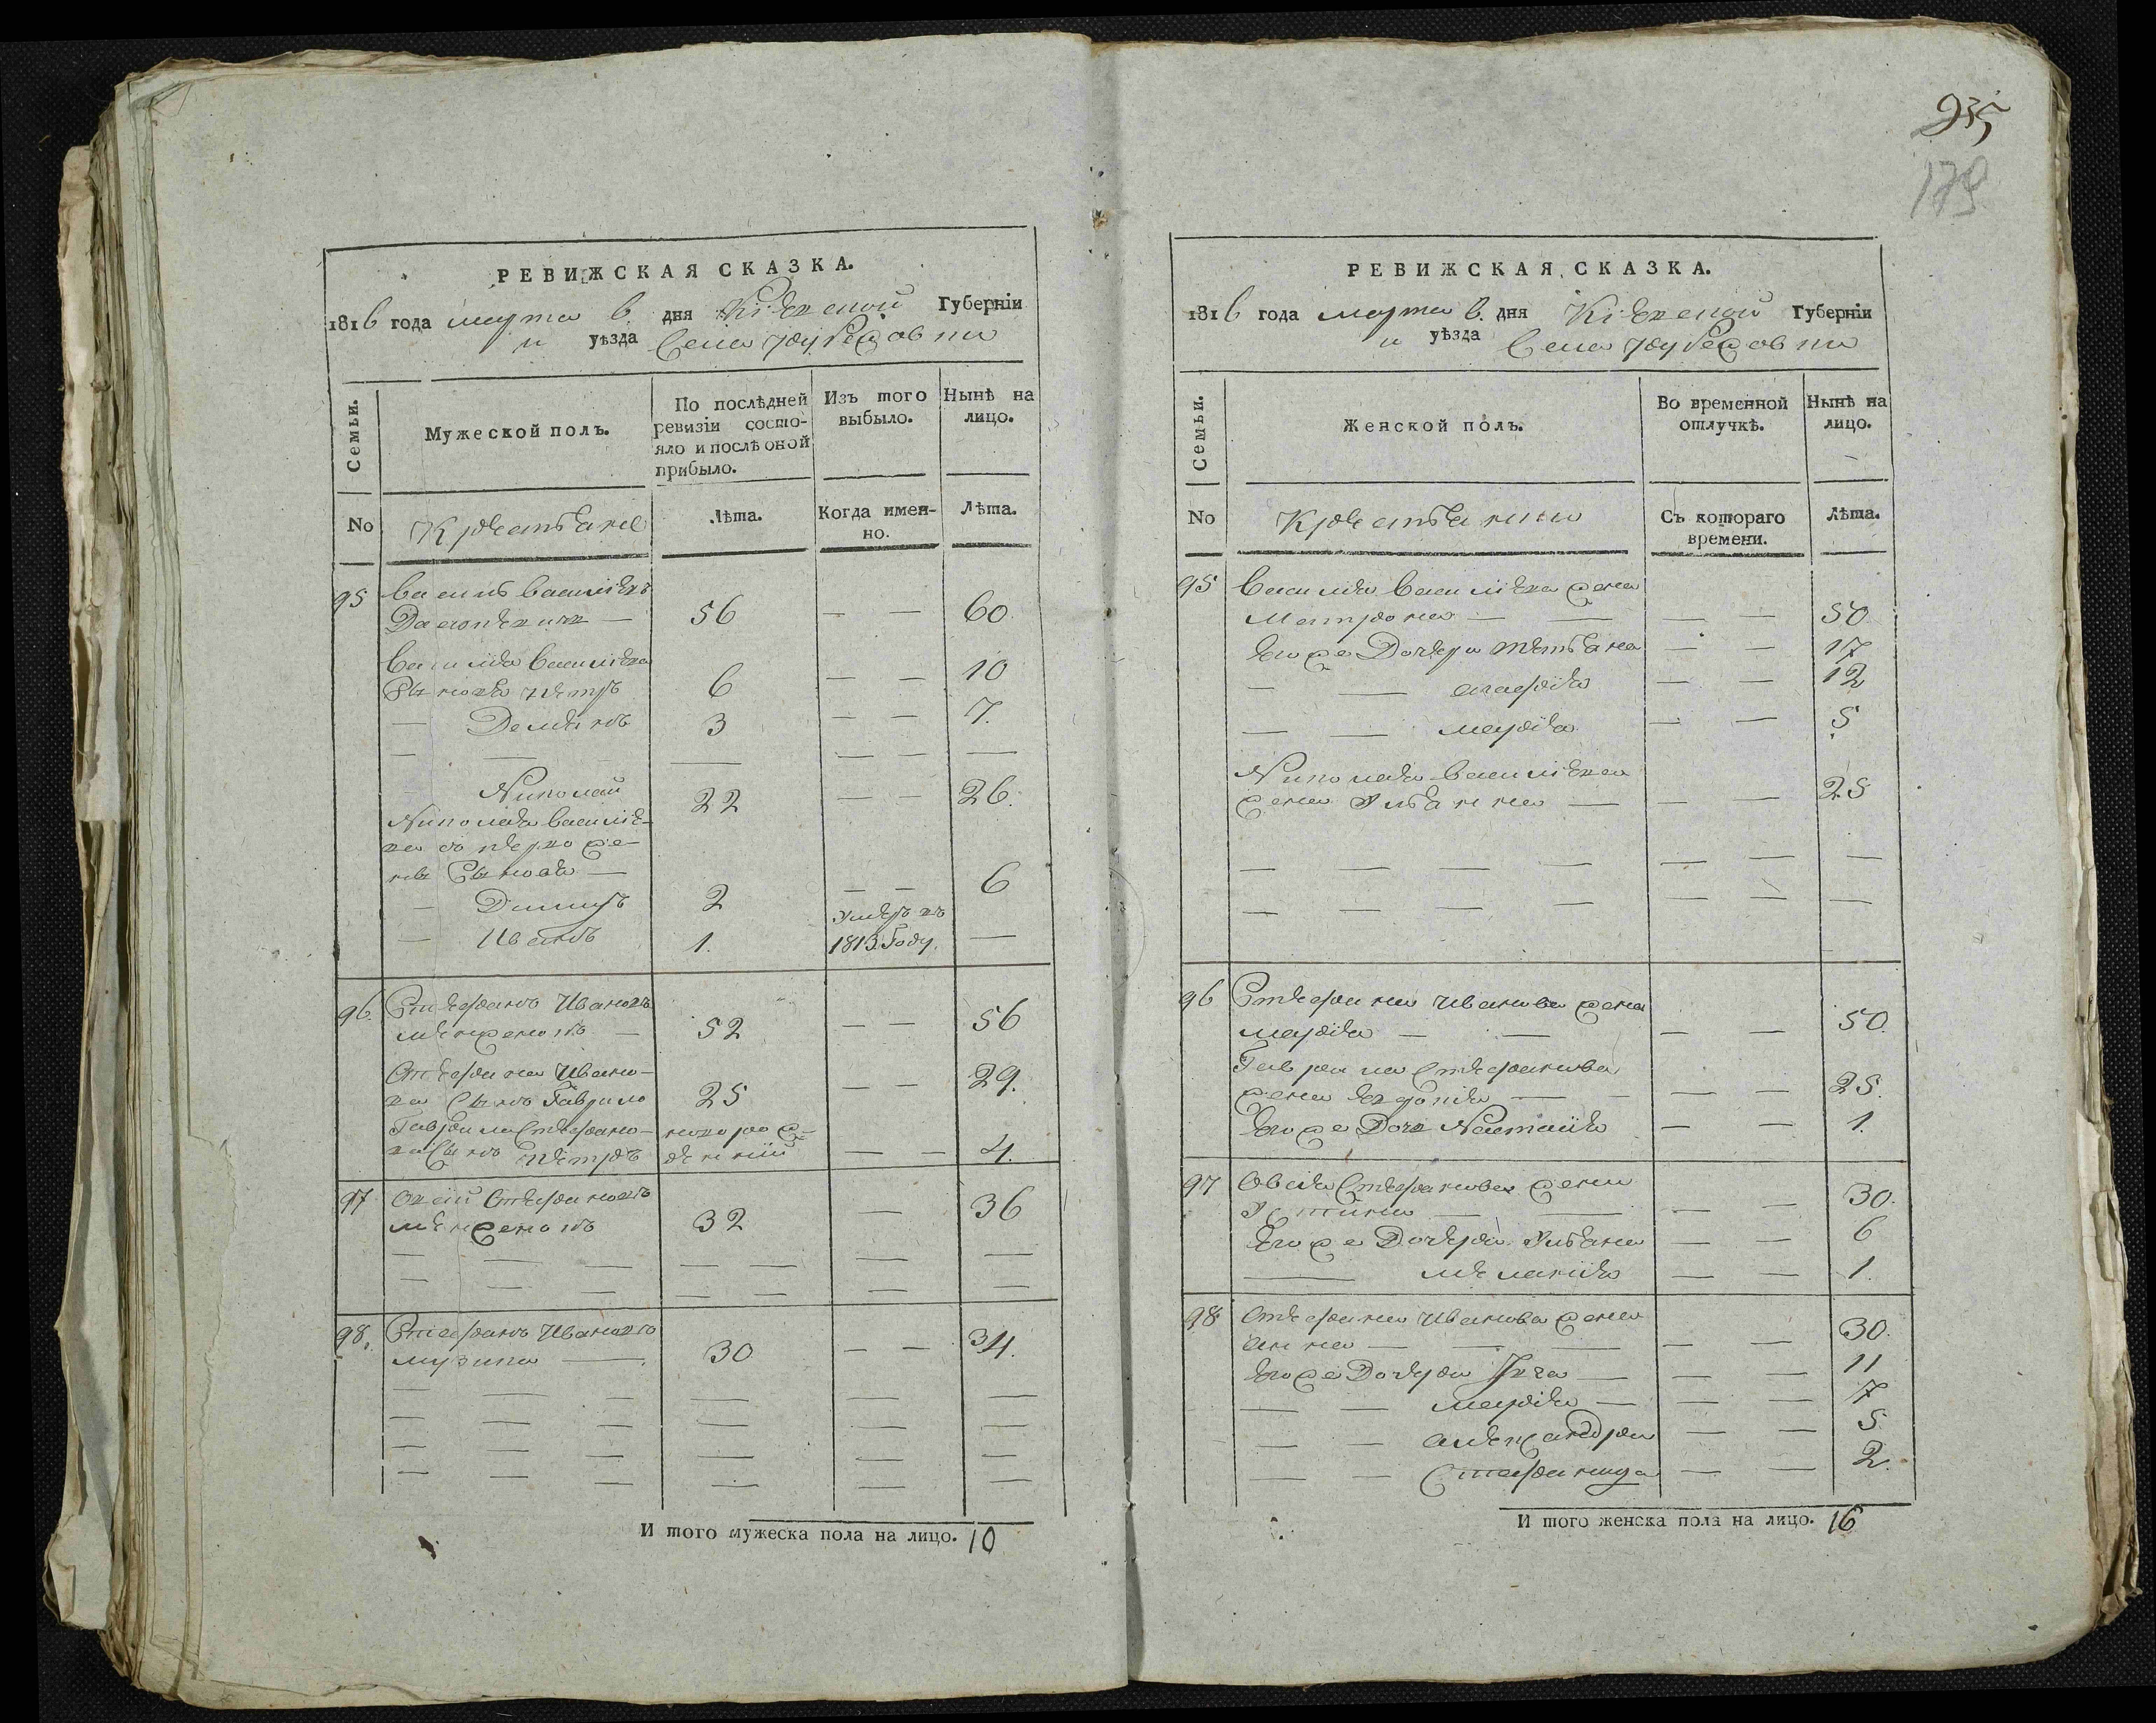 РЕВИЖСКАЯ СКАЗКА.
1816 года марта 6 дня Кіевской Губерніи
и уѣзда Села
Семьи.
Мужеской полъ.
По послѣдней ревизіи состо-
яло и послѣ оной
прибыло.
Изъ того
выбыло.
Нынѣ на
лицо.
No
Крестьяне
Лѣта.
Когда имен-
но.
Лѣта.
95 Василь Васильевъ
56 — — 60
Василія Васильева
Сыновя Петръ 6 — — 10
— Деміянъ 3 — — 7.
Николай 22 — — 26.
Николая Василіе-
ва съ первою же-
ны Сыновя —
— 2 — — 6
— Иванъ 1. Умеръ въ 1813 Году. —
96. Стефанъ Ивановъ
52 — — 56
Стефана Ивано-
ва Сынъ Гаврило 25 — — 29.
Гаврила Стефано-
ва Сынъ Петръ новорож-
денній — — 4.
97 Стефановъ
32 — 36
98. Стефанъ Ивановъ
музика — 30 — — 34.
И того мужеска пола на лицо. 10
935
179
РЕВИЖСКАЯ СКАЗКА.
1816 года марта 6. дня Кіевской Губерніи
и уѣзда Села
Семьи.
Женской полъ.
Во временной
отлучкѣ.
Нынѣ на
лицо.
No
Крестьянки
Съ котораго
времени.
Лѣта.
95 Василія Васильева жена
Матрона — — 50
Егоже Дочери Тетьяна — — 17
— — — — 12
— — марія — — 5
Николая Васильева
жена Ульянна — — — 25
96 Стефана Иванова жена
марія — — — — 50.
Гаврила Стефанова
жена — — — 25.
Егоже Доч Настасія — — 1.
97 Стефанова жена
Устина — — — — 30.
Егоже Дочери Ульяна — — 6
— меланія — — 1.
98 Стефана Иванова жена
анна — — — — 30.
Егоже Дочери — — — 11
— — марія — — — 7
— — александра — — 5
— — Стефанида — — 2.
И того женска пола на лицо. 16